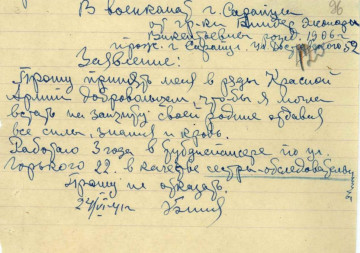 96
В военкомат г. Сарапула
от гр-ки
Викентьевны рожд. 1906 г
прож. г. Сарапул
Заявление:
Прошу принять меня в ряды Красной
Армии добровольцем, чтобы я могла
встать на защиту своей родине отдавая
все силы, знания и кровь.
Работаю 3 года в тубдиспансере по ул.
Горького 22. в качестве сестры-обследователь
Прошу не отказать.
24/VI-41г